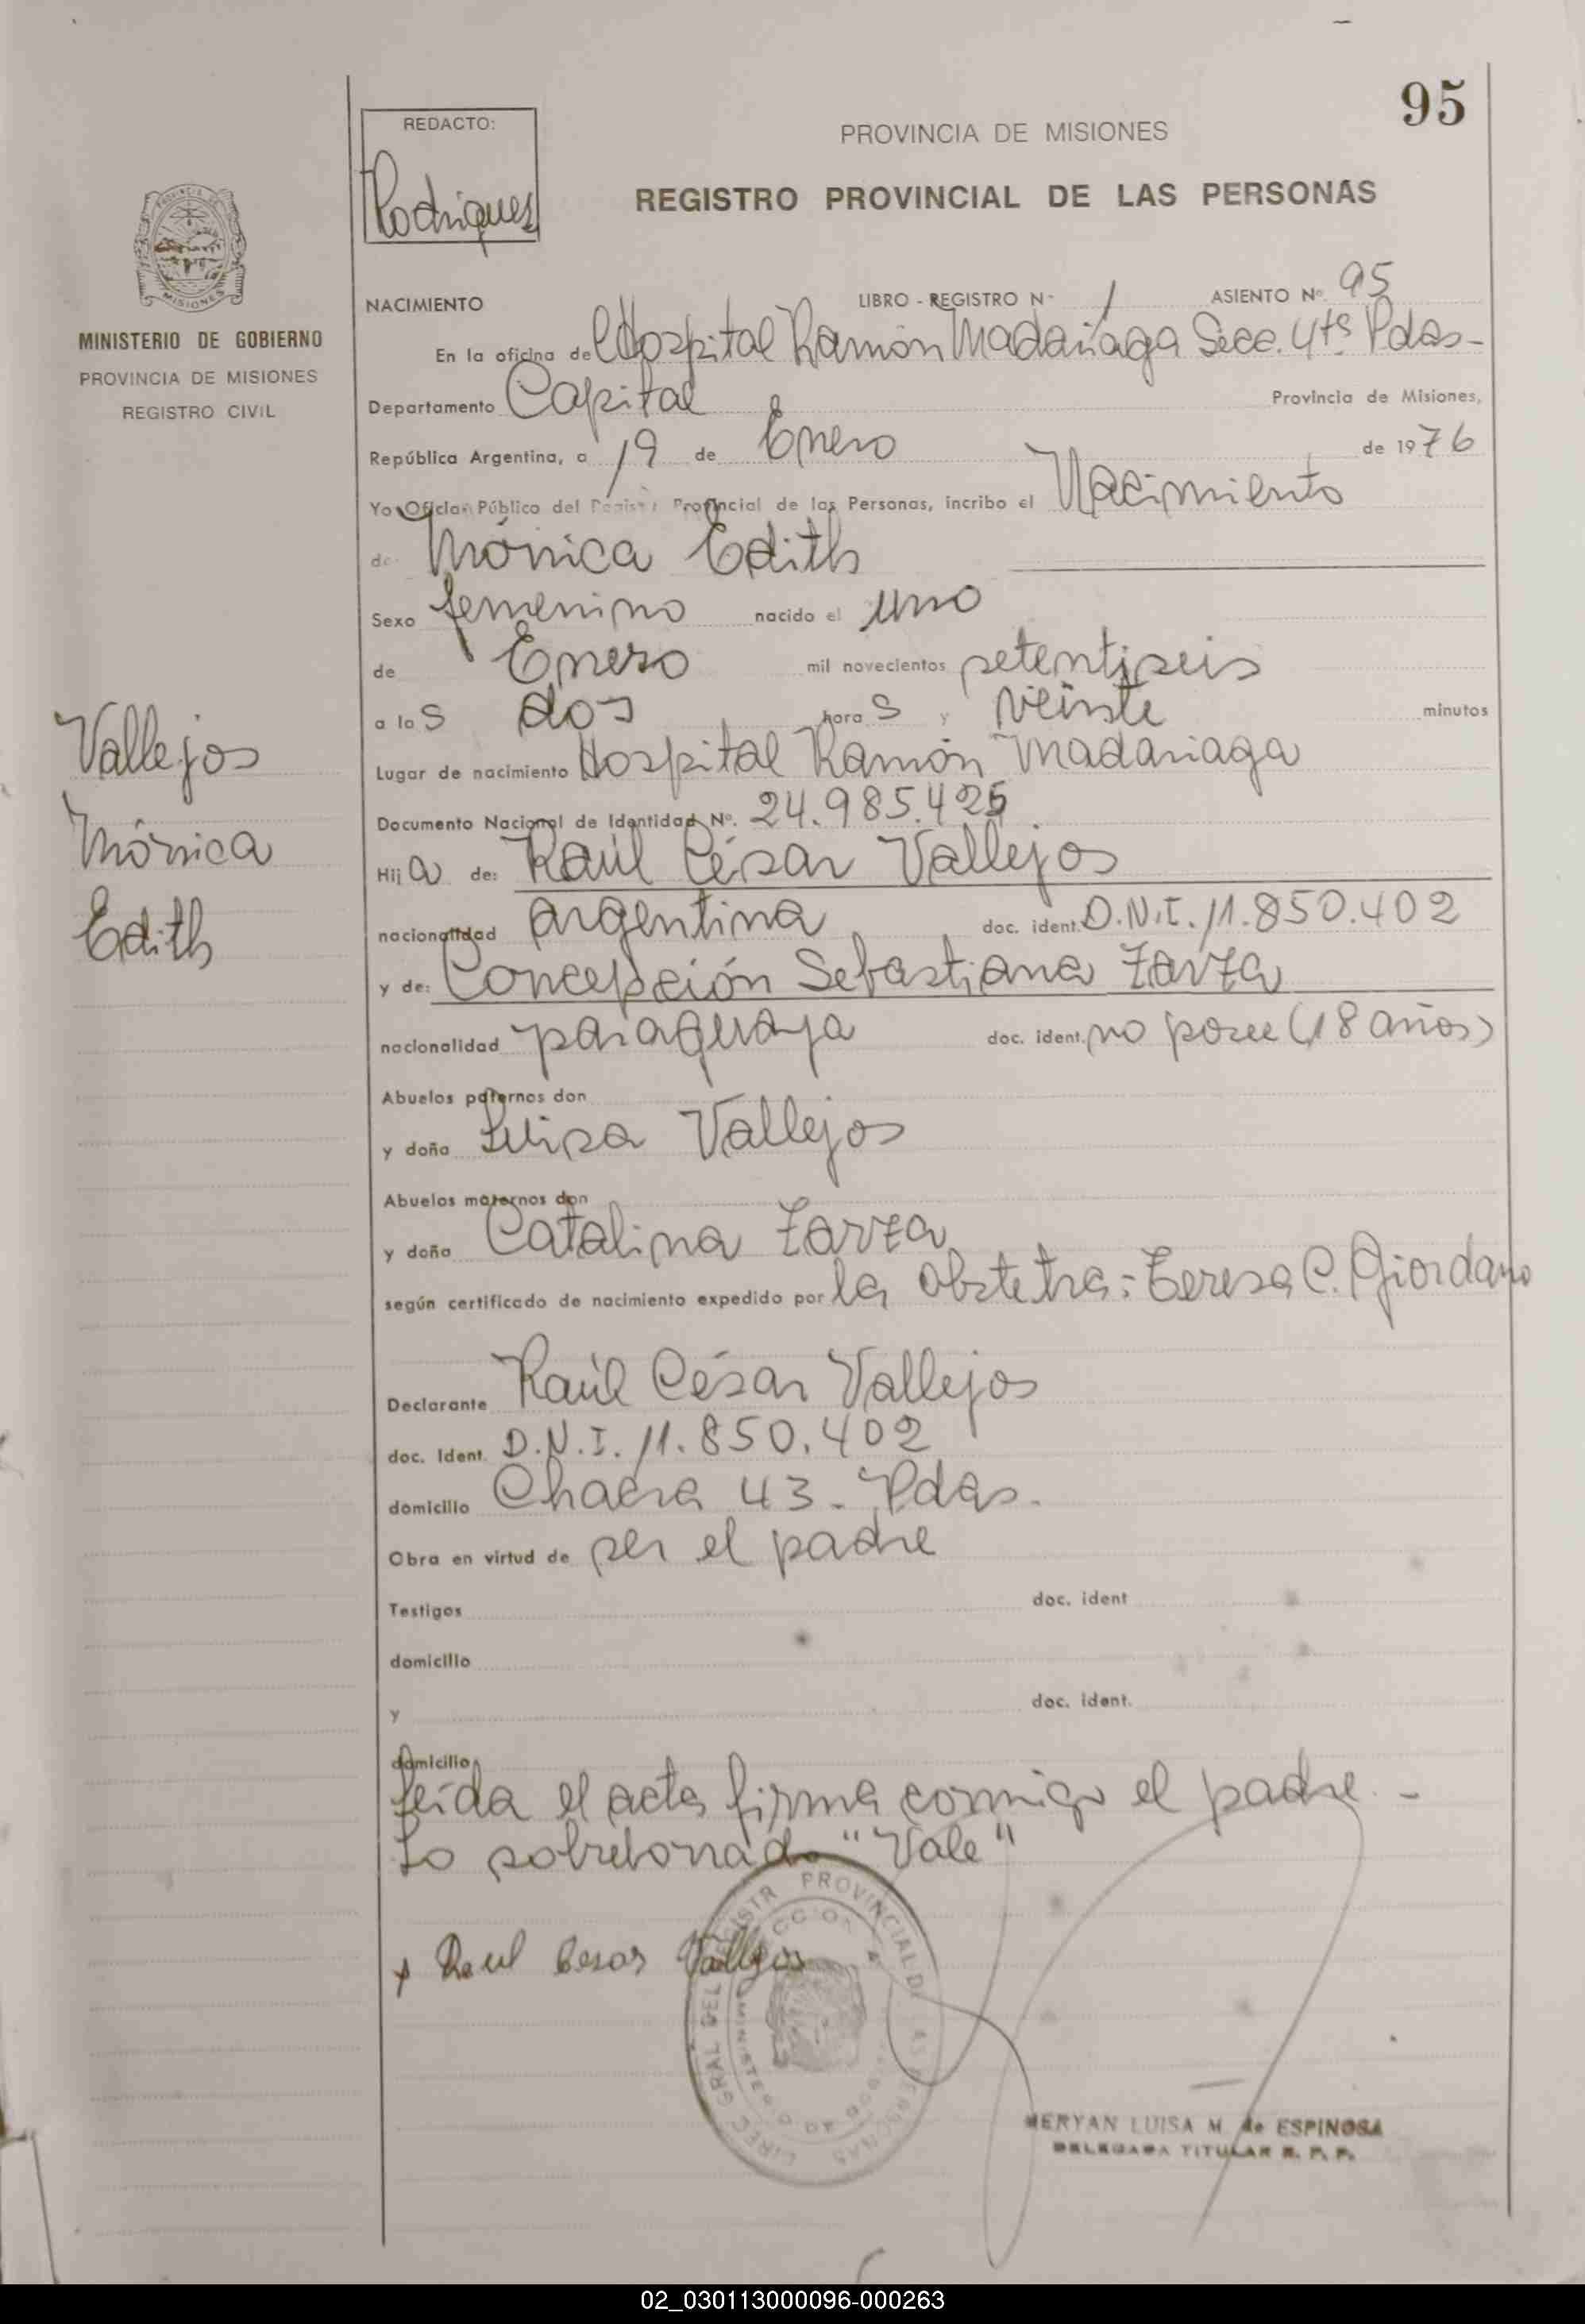 95
REDACTO:
Rodriguez
PROVINCIA DE MISIONES
REGISTRO PROVINCIAL DE LAS PERSONAS
MINISTERIO DE GOBIERNO
PROVINCIA DE MISIONES
REGISTRO CIVIL
NACIMIENTO LIBRO - REGISTRO Nº 1 ASIENTO Nº 95
En la oficina del Hospital Ramón Madariaga Secc. 4ta Pdas-
Departamento Capital Provincia de Misiones,
República Argentina, a 19 de Enero de 1976
Yo Oficial Público del Registro Provincial de las Personas, incribo el Nacimiento
de Mónica Edith
Sexo femenino nacido el uno
de Enero mil novecientos setentiseis
a las dos horas y veinte minutos
Lugar de nacimiento Hospital Ramón Madariaga
Documento Nacional de Identidad Nº. 24.985.425
Hija de: Raúl César Vallejos
nacionalidad argentina doc. ident. D.N.I. 11.850.402
y de: Concepción Sebastiana Zarza
nacionalidad paraguaya doc. ident. no posee (18 años)
Abuelos paternos don
y doña Luisa Vallejos
Abuelos maternos don
y doña Catalina Zarza
según certificado de nacimiento expedido por la Obstetra: Teresa C. Giordano
Declarante Raúl César Vallejos
doc. Ident. D.N.I. 11.850.402
domicilio Chacra 43. Pdas.
Obra en virtud de ser el padre
Testigos doc. ident
domicilio
y doc. ident.
domicilio
Leída el acta firma conmigo el padre. -
Lo sobreborrado "Vale"
x Raul Cesar Vallejos
Vallejos
Mónica
Edith
MERYAN LUISA M. de ESPINOSA
DELEGADA TITULAR R. P. P.
02_030113000096-000263